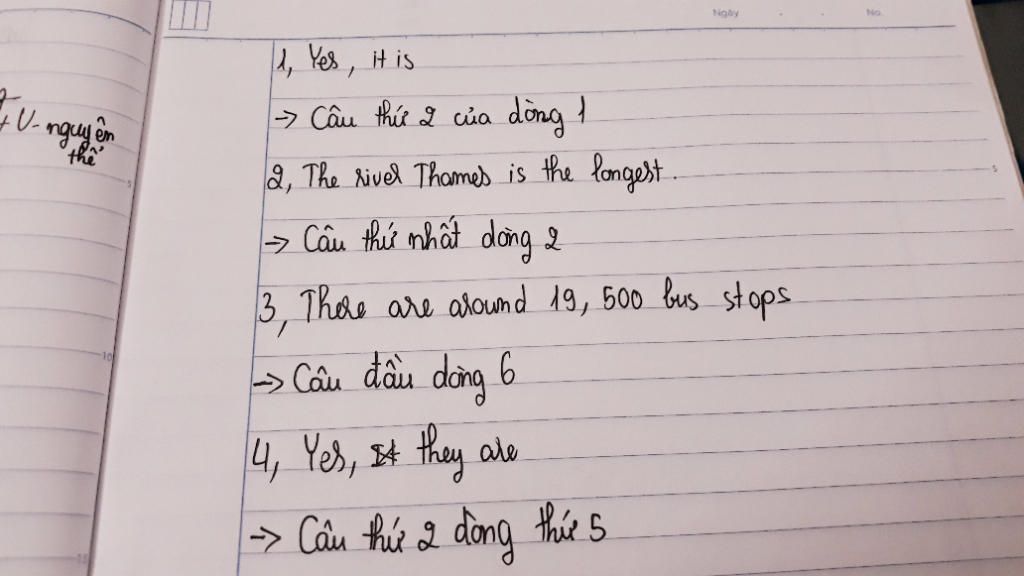 Ngày . . No.
+ V- nguyên
thể
1, Yes, it is
→ Câu thứ 2 của dòng 1
2, The river Thames is the longest.
→ Câu thứ nhất dòng 2
3, There are around 19, 500 bus stops
→ Câu đầu dòng 6
4, Yes, they are
→ Câu thứ 2 dòng thứ 5
5
10
15
5